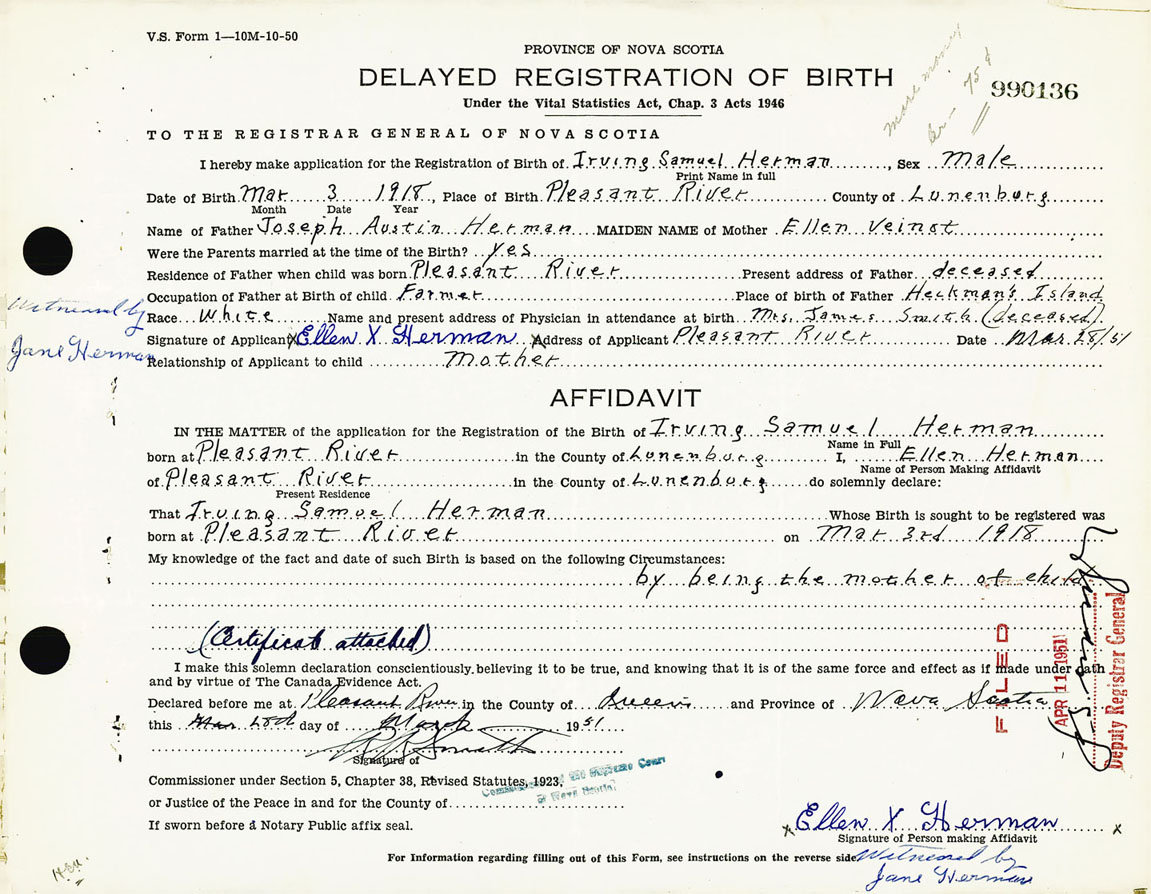 V.S. Form 1—10M-10-50
PROVINCE OF NOVA SCOTIA
DELAYED REGISTRATION OF BIRTH
Under the Vital Statistics Act, Chap. 3 Acts 1946
more money
75¢
990136
TO THE REGISTRAR GENERAL OF NOVA SCOTIA
I hereby make application for the Registration of Birth of Irving Samuel Herman, Sex Male
Print Name in full
Date of Birth Mar 3 1918, Place of Birth Pleasant River County of Lunenburg
Month Date Year
Name of Father Joseph Austin Herman MAIDEN NAME of Mother Ellen Veinot
Were the Parents married at the time of the Birth? yes
Residence of Father when child was born Pleasant River Present address of Father deceased
Occupation of Father at Birth of child Farmer Place of birth of Father Heckman's Island
Race White Name and present address of Physician in attendance at birth Mrs. James Smith (deceased)
Signature of Applicant x Ellen X Herman Address of Applicant Pleasant River Date Mar. 28/51
Relationship of Applicant to child Mother
Witnessed by
Jane Herman
AFFIDAVIT
IN THE MATTER of the application for the Registration of the Birth of Irving Samuel Herman
Name in Full
born at Pleasant River in the County of Lunenburg I, Ellen Herman
Name of Person Making Affidavit
of Pleasant River in the County of Lunenburg do solemnly declare:
Present Residence
That Irving Samuel Herman Whose Birth is sought to be registered was
born at Pleasant River on Mar 3rd 1918
My knowledge of the fact and date of such Birth is based on the following Circumstances:
by being the mother of child
(Certificate attached)
I make this solemn declaration conscientiously believing it to be true, and knowing that it is of the same force and effect as if made under oath
and by virtue of The Canada Evidence Act.
Declared before me at Pleasant River in the County of Queens and Province of Nova Scotia
this Mar 28th day of March 1951
Signature of
Commissioner under Section 5, Chapter 38, Revised Statutes, 1923,
or Justice of the Peace in and for the County of
If sworn before a Notary Public affix seal.
of the Supreme Court
of Nova Scotia
FILED
APR 11 1951
Deputy Registrar General
x Ellen X Herman x
Signature of Person making Affidavit
For Information regarding filling out of this Form, see instructions on the reverse side
Witnessed by
Jane Herman